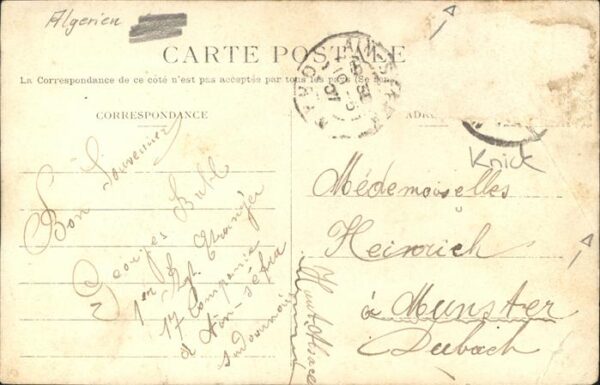 Algerien
CARTE POSTALE
La Correspondance de ce côté n'est pas acceptée par tous les pays (Se
CORRESPONDANCE
ADR
Knick
Bon Souvenir
Georges Buhl
1er Rgt. Etranger
17 Compagnie
à Aïn séfra
sudoranais
Médemoiselles
Heinrich
à Munster
Haut Alsace